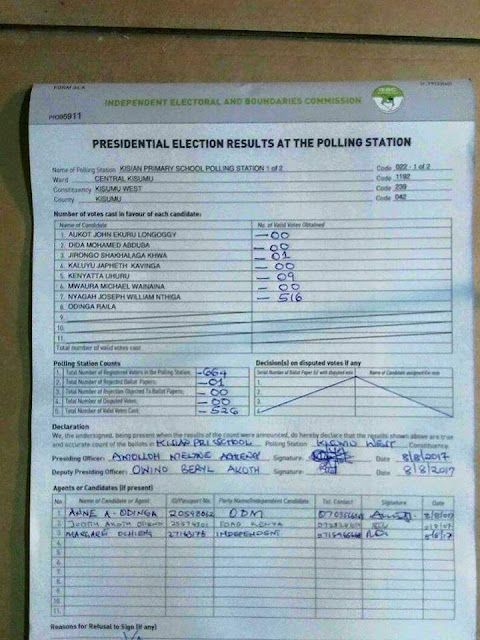 FORM 34A
INDEPENDENT ELECTORAL AND BOUNDARIES COMMISSION
IEBC
PRESIDENTIAL ELECTION RESULTS AT THE POLLING STATION
Name of Polling Station KISIAN PRIMARY SCHOOL POLLING STATION 1 of 2 Code 022 - 1 of 2
Ward CENTRAL KISUMU Code 1192
Constituency KISUMU WEST Code 239
County KISUMU Code 042
Number of votes cast in favour of each candidate:
Name of Candidate No. of Valid Votes Obtained
1. AUKOT JOHN EKURU LONGOGGY — 00
2. DIDA MOHAMED ABDUBA — 00
3. JIRONGO SHAKHALAGA KHWA — 01
4. KALUYU JAPHETH KAVINGA — 00
5. KENYATTA UHURU — 09
6. MWAURA MICHAEL WAINAINA — 00
7. NYAGAH JOSEPH WILLIAM NTHIGA — 516
8. ODINGA RAILA
9.
10.
11.
Total number of valid votes cast
Polling Station Counts
1. Total Number of Registered Voters in the Polling Station: -664
2. Total Number of Rejected Ballot Papers: -01
3. Total Number of Rejection Objected To Ballot Papers: - 00
4. Total Number of Disputed Votes: - 00
5. Total Number of Valid Votes Cast: - 526
Decision(s) on disputed votes if any
Serial Number of Ballot Paper (s) with disputed vote Name of Candidate assigned the vote
1.
2.
3.
4.
Declaration
We, the undersigned, being present when the results of the count were announced, do hereby declare that the results shown above are true
and accurate count of the ballots in KISIAN PRI SCHOOL Polling Station KISUMU WEST Constituency
Presiding Officer: Signature: Date 8/8/2017
Deputy Presiding Officer: OWINO BERYL AKOTH Signature: Date 8/8/2017
Agents or Candidates (if present)
No Name of Candidate or Agent ID/Passport No. Party Name/Independent Candidate Tel. Contact Signature Date
1 ANNE A. ODINGA ODM
2 FORD KENYA
3 MARGARET OCHIENG INDEPENDENT
4
5
6
7
8
9
10
11
Reasons for Refusal to Sign (if any)